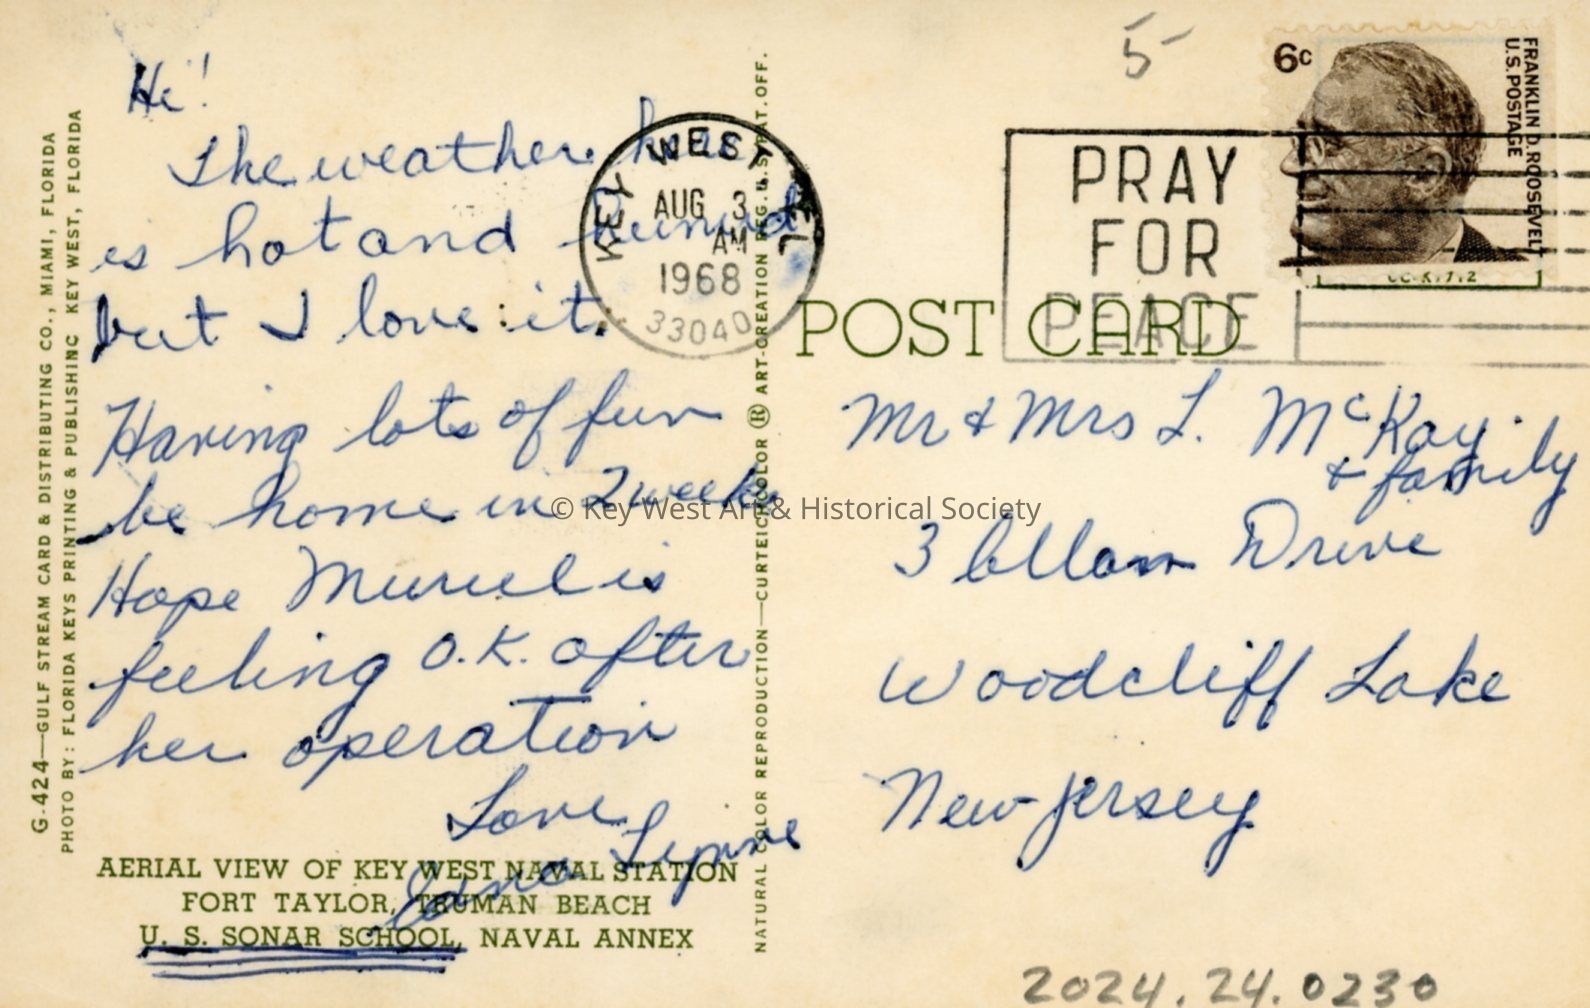 Hi!
The weather here
is hot and humid
but I love it.
Having lots of fun
be home in 2 weeks
Hope Muriel is
feeling O.K. after
her operation
Love
Edna Lynne
AERIAL VIEW OF KEY WEST NAVAL STATION
FORT TAYLOR, TRUMAN BEACH
U. S. SONAR SCHOOL, NAVAL ANNEX
G-424—GULF STREAM CARD & DISTRIBUTING CO., MIAMI, FLORIDA
PHOTO BY: FLORIDA KEYS PRINTING & PUBLISHING KEY WEST, FLORIDA
NATURAL COLOR REPRODUCTION—CURTEICHCOLOR ® ART-CREATION REG. U.S. PAT. OFF.
KEY WEST, FLA.
AUG 3
AM
1968
33040
5-
PRAY
FOR
PEACE
6c
FRANKLIN D. ROOSEVELT
U.S. POSTAGE
POST CARD
Mr & Mrs L. McKay
& family
3 Drive
Woodcliff Lake
New Jersey
© Key West Art & Historical Society
2024.24.0230